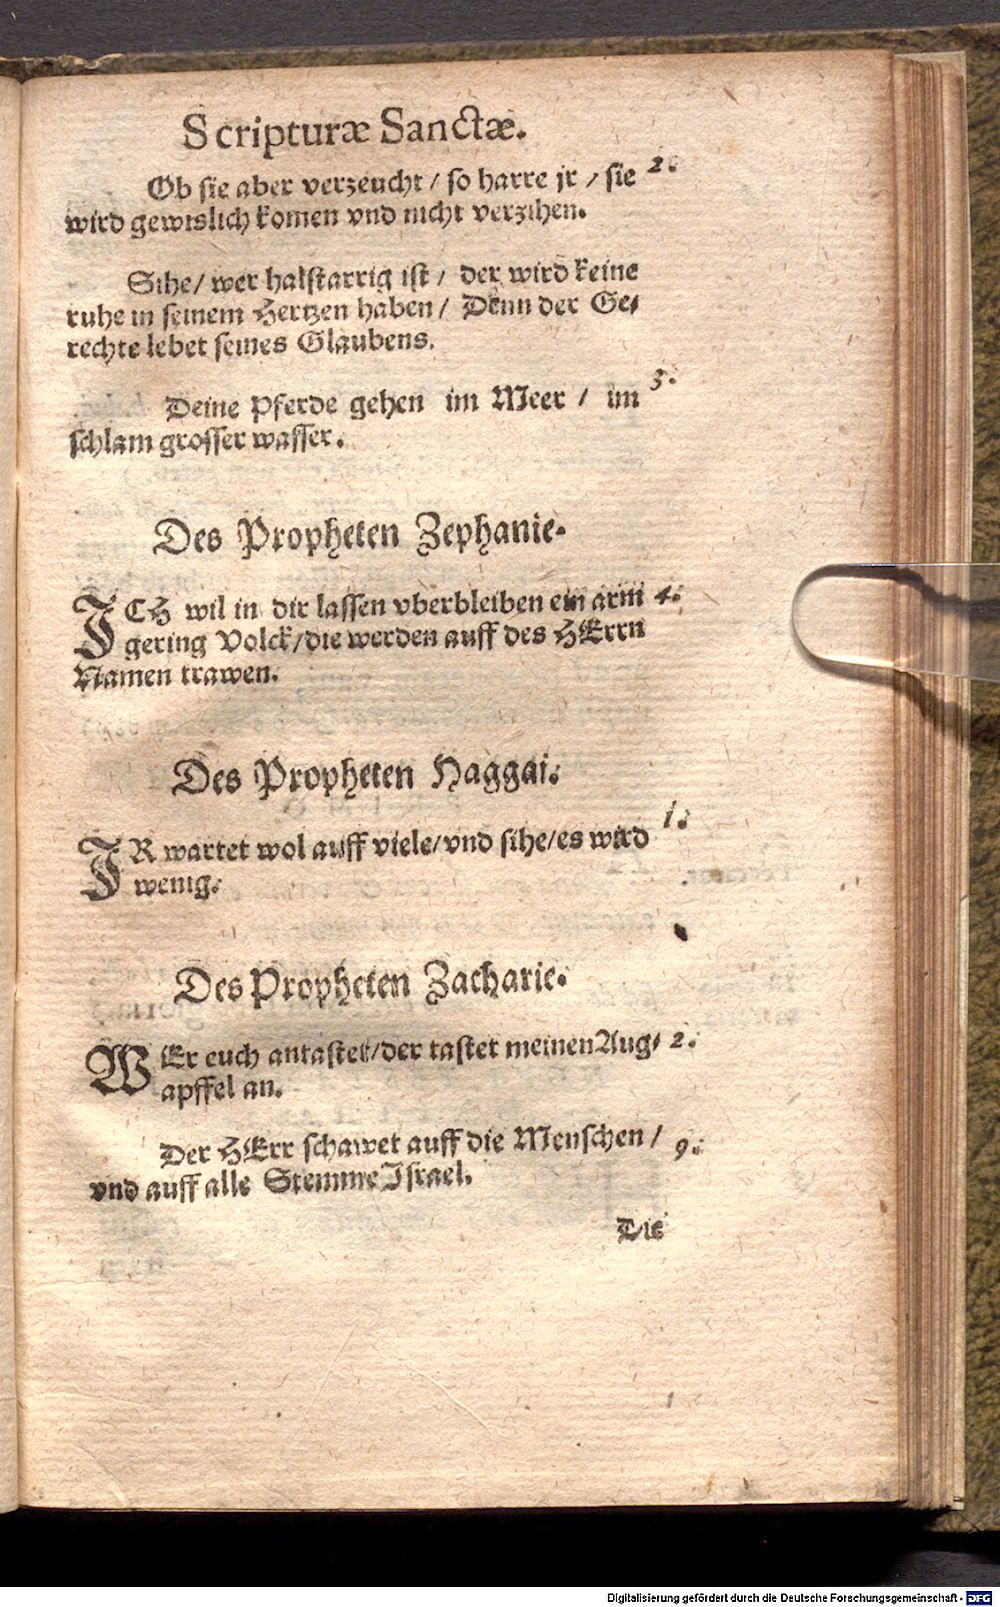 Scripturæ Sanctæ.
Ob sie aber verzeucht / so harre jr / sie 2.
wird gewislich komen vnd nicht verzihen.
Sihe / wer halstarrig ist / der wird keine
ruhe in seinem Hertzen haben / Denn der Ge⸗
rechte lebet seines Glaubens.
Deine Pferde gehen im Meer / im 3.
schlam grosser wasser.
Des Propheten Zephanie.
ICH wil in dir lassen vberbleiben ein arm 4.
gering Volck / die werden auff des HErrn
Namen trawen.
Des Propheten Haggai.
IR wartet wol auff viele / vnd sihe / es wird 1.
wenig.
Des Propheten Zacharie.
WEr euch antastet / der tastet meinen Aug⸗ 2.
apffel an.
Der HErr schawet auff die Menschen / 9.
vnd auff alle Stemme Israel.
Die
Digitalisierung gefördert durch die Deutsche Forschungsgemeinschaft - DFG